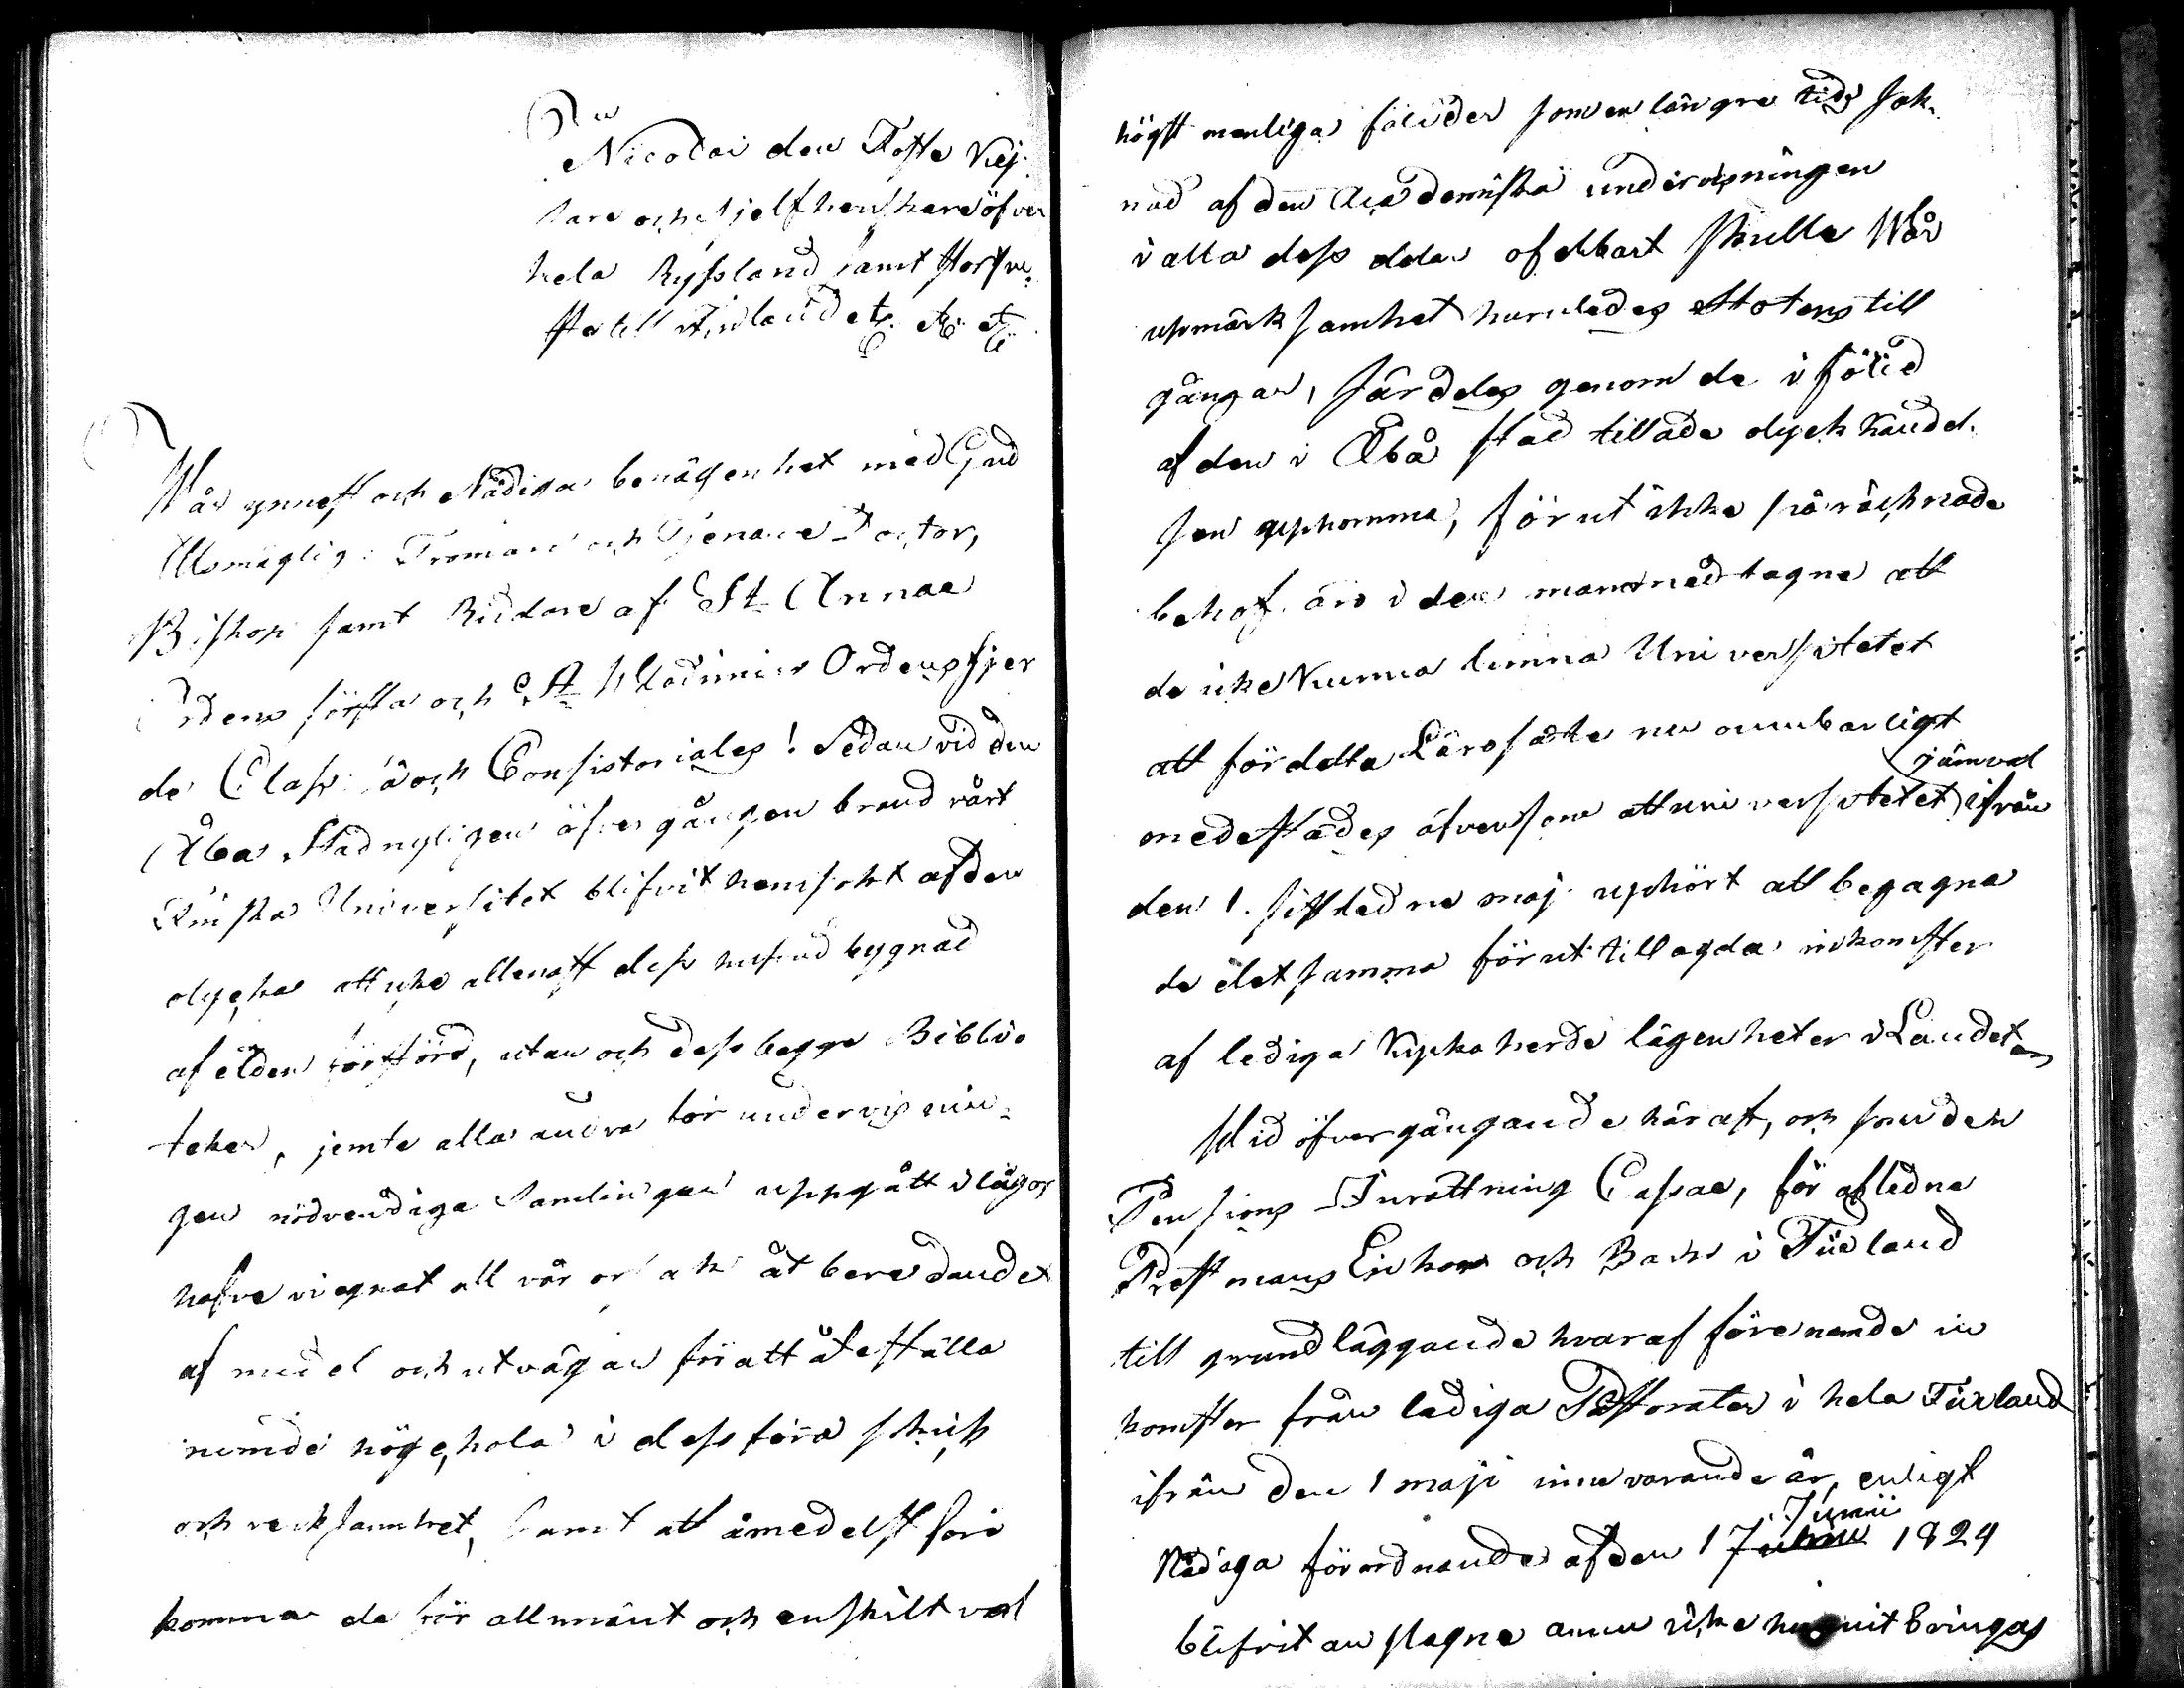 Nicolai den Första Kej¬
sare och Sjelfherskare öfver
hela Ryssland samt Storfur¬
ste till Finland etc. etc. etc.
Vår ynnest och Nådiga benägenhet med Gud
Allsmägtig. Troman och Tjenare Doctor,
Biskop samt Riddare af St Annae
Ordens första och St Wladimirs Ordens fjer
de Class så och Consistoriales! Sedan vid den
Åbo Stad nyligen öfvergången brand vårt
Finska Universitet blifvit hemsökt af den
olycka att icke allenast dess hufvud bygnad
af elden förstörd, utan och dess begge Biblio
teker, jemte alla andra för undervisnin¬
gen nödvendiga Samlingar uppgått i lågor
hafve vi egnat all vår orsak åt beredandet
af medel och utvägar för att återställa
nemde högschola i dess förra skick
och verksamhet, samt att åmedelst före
komma de för allmänt och enskilt väl
högst menliga följder som en längre tids sak¬
nad af den Academiska undervisningen
i alla dess delar ofelbart skulle Vår
upmärksamhet hvarledes Statens till
gångar, särdeles genom de i följd
af den i Åbo stad timade olyckshändel¬
sen upkomna, förut icke påräcknade
behof äro i den mon medtagne att
de icke kunna lemna Universitetet
att för detta Lärosäte nu oumbarligt
medelst ädes äfvensom att universitetet jämväl ifrån
den 1. sistledne maj uphört att begagna
de det samma förut tillagda inkomster
af lediga Kyrkoherde lägenheter i Landet.
Vid öfvergångande häraf, och som den
Pensions Inrättning Cassae, för aflidne
Prestmans Enkor och Barn i Finland
till grundläggande hvaraf förenemde in
komster från lediga Pastorater i hela Finland
ifrån den 1 maji innevarande år, enligt
Nådiga förordnande af den 1 Junii 1824
blifvit anslagne ännu icke hunnit bringas